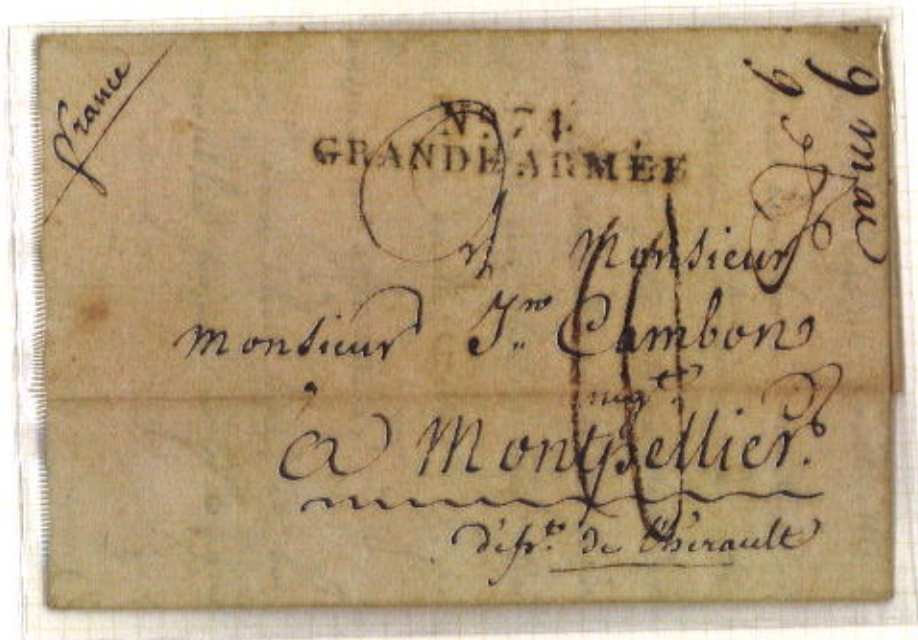 france
N° 74.
GRANDE ARMÉE
9 mai
A Monsieur
Monsieur Jn. Cambon
negt.
à Montpellier.
dépt. de l'hérault